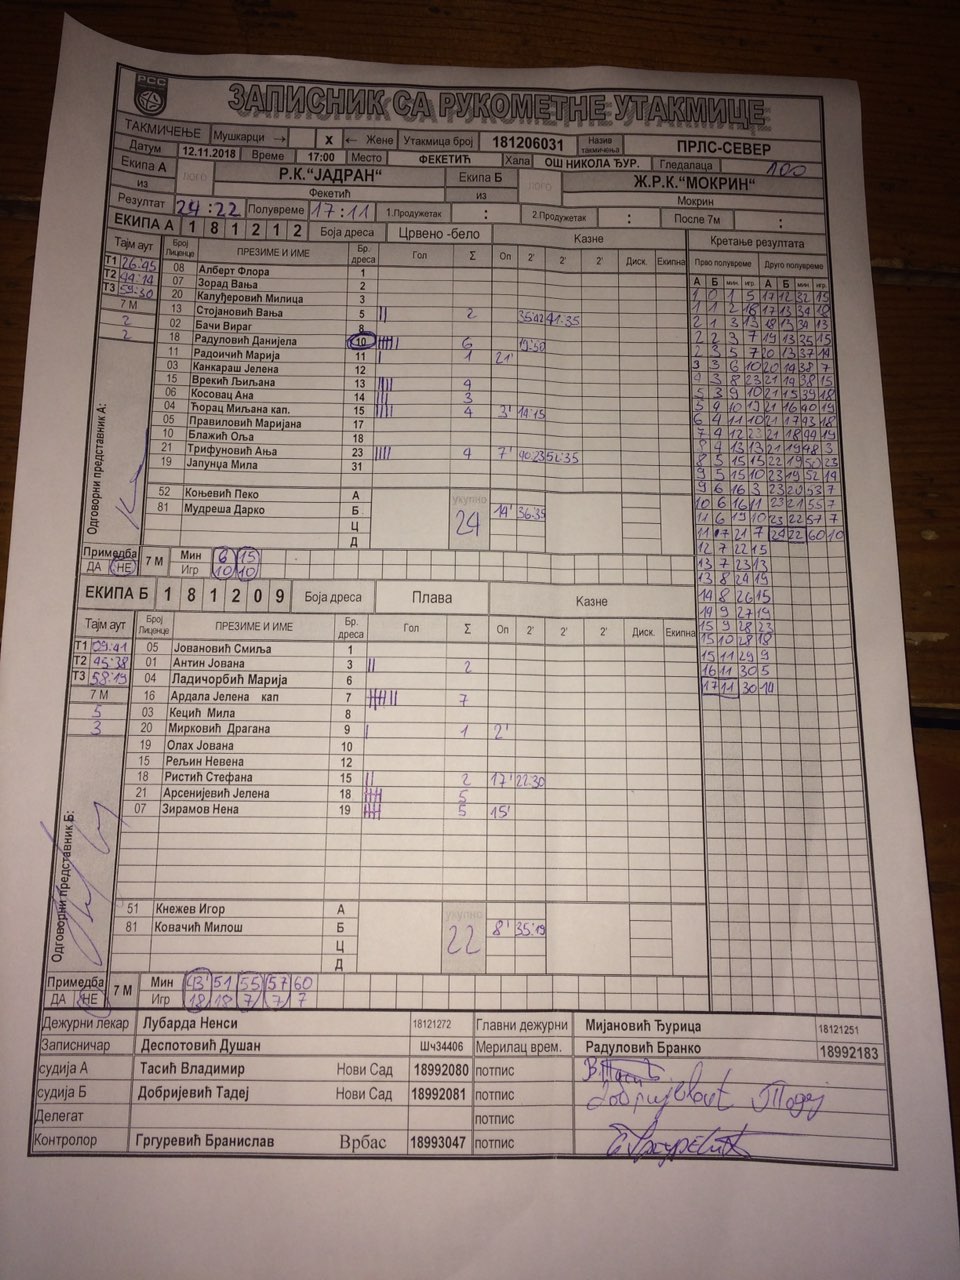 РСС
ЗАПИСНИК СА РУКОМЕТНЕ УТАКМИЦЕ
ТАКМИЧЕЊЕ Мушкарци → X ← Жене Утакмица број 181206031 Назив такмичења ПРЛС-СЕВЕР
Датум 12.11.2018 Време 17:00 Место ФЕКЕТИЋ Хала ОШ НИКОЛА ЂУР. Гледалаца 100
Екипа А ЛОГО Р.К.“ЈАДРАН“ Екипа Б ЛОГО Ж.Р.К.“МОКРИН“
из Фекетић из Мокрин
Резултат 24:22 Полувреме 17:11 1.Продужетак : 2.Продужетак : После 7м :
ЕКИПА А 1 8 1 2 1 2 Боја дреса Црвено -бело Казне Кретање резултата
Тајм аут Број Лиценце ПРЕЗИМЕ И ИМЕ Бр. дреса Гол Σ Оп 2' 2' 2' Диск. Екипна
Прво полувреме Друго полувреме
А Б мин. игр. А Б мин. игр.
Т1 26:45
Т2 44:14
Т3 59:30
7 М
2
2
08 Алберт Флора 1
07 Зорад Вања 2
20 Калуђеровић Милица 3
13 Стојановић Вања 5 || 2 35:42 41:35
02 Бачи Вираг 8
18 Радуловић Данијела 10 6 19:50
11 Радоичић Марија 11 | 1 21'
03 Канкараш Јелена 12
15 Врекић Љиљана 13 |||| 4
06 Косовац Ана 14 ||| 3
04 Ћорац Миљана кап. 15 |||| 4 3' 14:15
05 Правиловић Маријана 17
10 Блажић Оља 18
21 Трифуновић Ања 23 |||| 4 7' 40:23 51:35
19 Јапунџа Мила 31
52 Коњевић Пеко А
81 Мудреша Дарко Б 14' 36:35
Ц
Д
укупно
24
Одговорни представник А:
Примедба
ДА НЕ
7 М Мин 6 15
Игр 10 10
1 0 1 5 17 12 32 15
1 1 2 18 17 13 34 18
2 1 3 13 18 13 34 13
2 2 3 7 19 13 35 15
2 3 5 7 20 13 37 14
3 3 6 10 20 14 38 7
4 3 8 23 21 14 38 15
5 3 9 10 21 15 39 18
5 4 10 19 21 16 40 19
6 4 11 10 21 17 43 18
7 4 12 23 21 18 44 19
8 4 13 13 21 19 48 3
8 5 15 15 22 19 50 23
9 5 15 10 23 19 52 14
9 6 16 3 23 20 53 7
10 6 16 11 23 21 55 7
11 6 19 10 23 22 57 7
11 7 21 7 24 22 60 10
12 7 22 15
13 7 23 13
13 8 24 19
14 8 26 15
14 9 27 19
15 9 28 23
15 10 28 18
15 11 29 9
16 11 30 5
17 11 30 14
ЕКИПА Б 1 8 1 2 0 9 Боја дреса Плава Казне
Тајм аут Број Лиценце ПРЕЗИМЕ И ИМЕ Бр. дреса Гол Σ Оп 2' 2' 2' Диск. Екипна
Т1 09:41
Т2 45:38
Т3 58:19
7 М
5
3
05 Јовановић Смиља 1
01 Антин Јована 3 || 2
04 Ладичорбић Марија 6
16 Ардала Јелена кап 7 7
03 Кецић Мила 8
20 Мирковић Драгана 9 | 1 2'
19 Олах Јована 10
15 Рељин Невена 12
18 Ристић Стефана 15 || 2 17' 22:30
21 Арсенијевић Јелена 18 5
07 Зирамов Нена 19 5 15'
51 Кнежев Игор А
81 Ковачић Милош Б 8' 35:19
Ц
Д
укупно
22
Одговорни представник Б:
Примедба
ДА НЕ
7 М Мин 43' 51 55 57 60
Игр 18 18 7 7 7
Дежурни лекар Лубарда Ненси 18121272 Главни дежурни Мијановић Ђурица 18121251
Записничар Деспотовић Душан Шч34406 Мерилац врем. Радуловић Бранко 18992183
судија А Тасић Владимир Нови Сад 18992080 потпис
судија Б Добријевић Тадеј Нови Сад 18992081 потпис Добријевић Тадеј
Делегат потпис
Контролор Гргуревић Бранислав Врбас 18993047 потпис